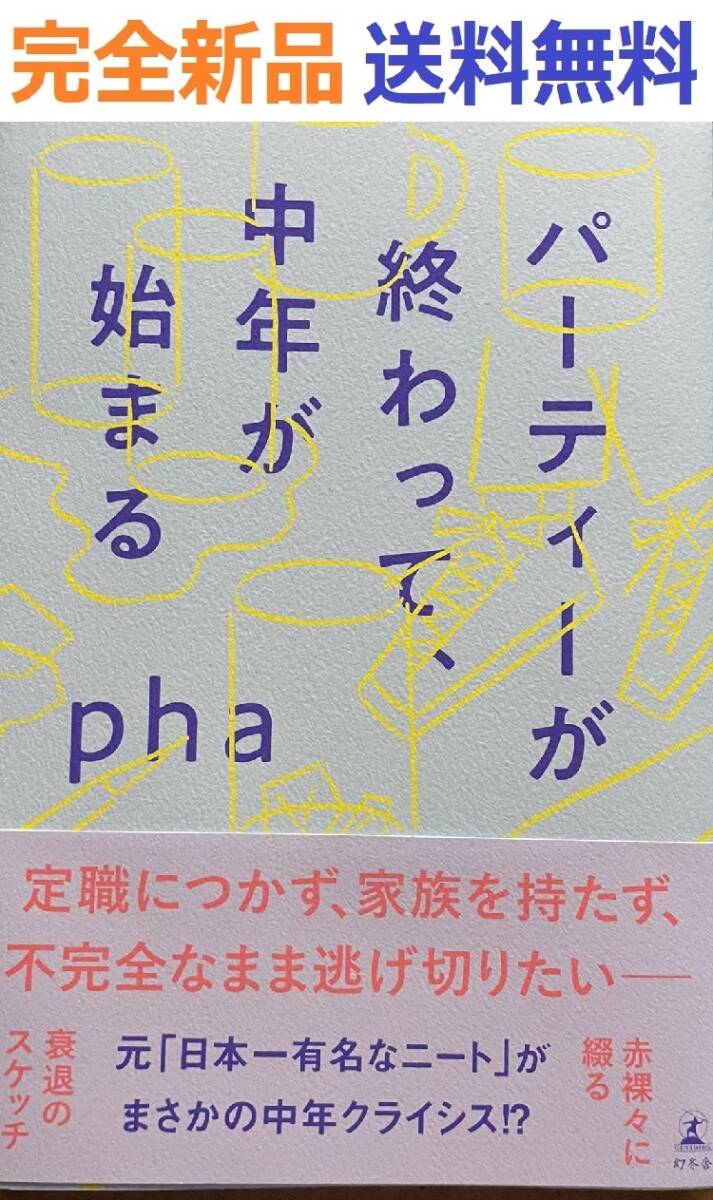 完全新品 送料無料
パーティーが
終わって、
中年が
始まる
pha
定職につかず、家族を持たず、
不完全なまま逃げ切りたい――
元「日本一有名なニート」が
まさかの中年クライシス!?
赤裸々に
綴る
衰退の
スケッチ
GENTOSHA
幻冬舎